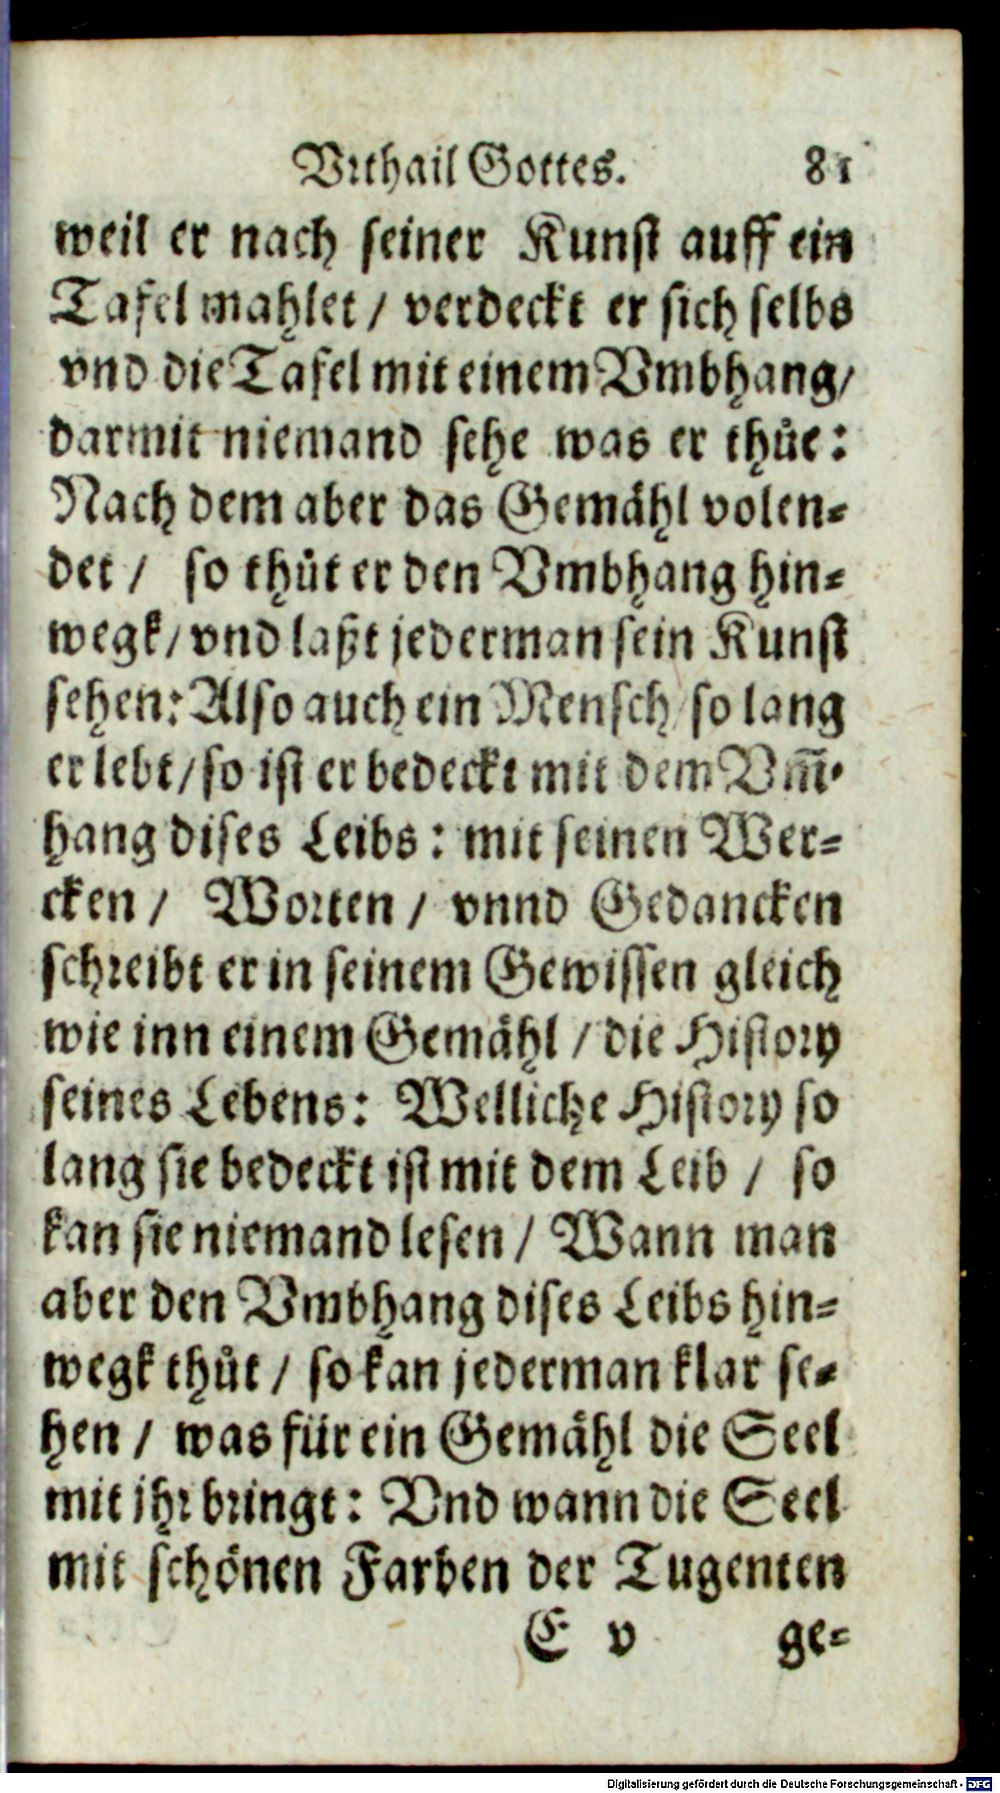 Vrthail Gottes. 81
weil er nach seiner Kunst auff ein
Tafel mahlet / verdeckt er sich selbs
vnd die Tafel mit einem Vmbhang /
darmit niemand sehe was er thůe:
Nach dem aber das Gemåhl volen-
det / so thůt er den Vmbhang hin-
wegk / vnd laßt jederman sein Kunst
sehen: Also auch ein Mensch / so lang
er lebt / so ist er bedeckt mit dem Vm̅-
hang dises Leibs: mit seinen Wer-
cken / Worten / vnnd Gedancken
schreibt er in seinem Gewissen gleich
wie inn einem Gemåhl / die History
seines Lebens: Welliche History so
lang sie bedeckt ist mit dem Leib / so
kan sie niemand lesen / Wann man
aber den Vmbhang dises Leibs hin-
wegk thůt / so kan jederman klar se-
hen / was für ein Gemåhl die Seel
mit jhr bringt: Vnd wann die Seel
mit schönen Farben der Tugenten
E v ge-
Digitalisierung gefördert durch die Deutsche Forschungsgemeinschaft - DFG